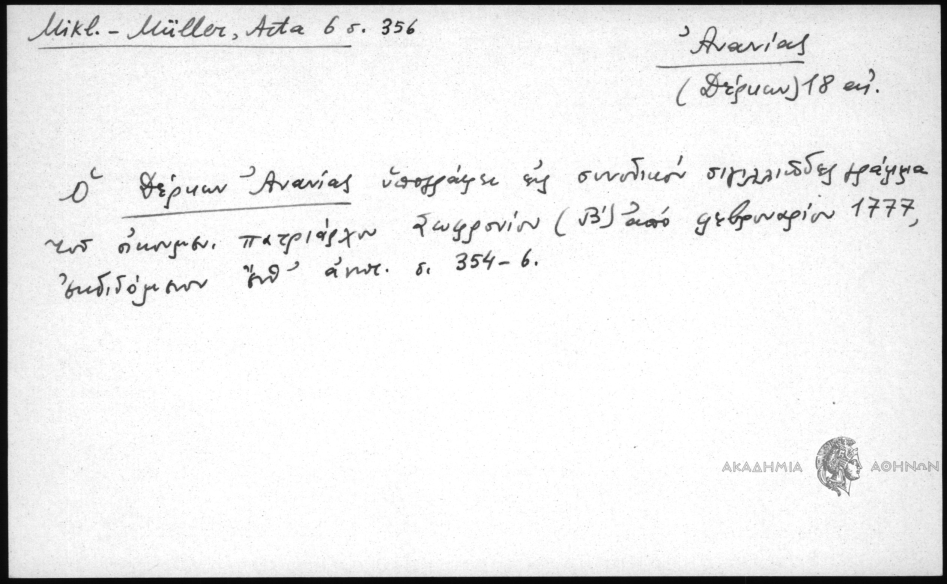 Mikl. - Müller, Acta 6 σ. 356
Ἀνανίας
(Δέρκων) 18 αἰ.
Ὁ Δέρκων Ἀνανίας ὑπογράφει εἰς συνοδικόν σιγιλλιῶδες γράμμα
τοῦ οἰκουμεν. πατριάρχου Σωφρονίου (Β') ἀπό φεβρουαρίου 1777,
ἐκδιδόμενον ἔνθ' ἀνωτ. σ. 354-6.
ΑΚΑΔΗΜΙΑ ΑΘΗΝΩΝ